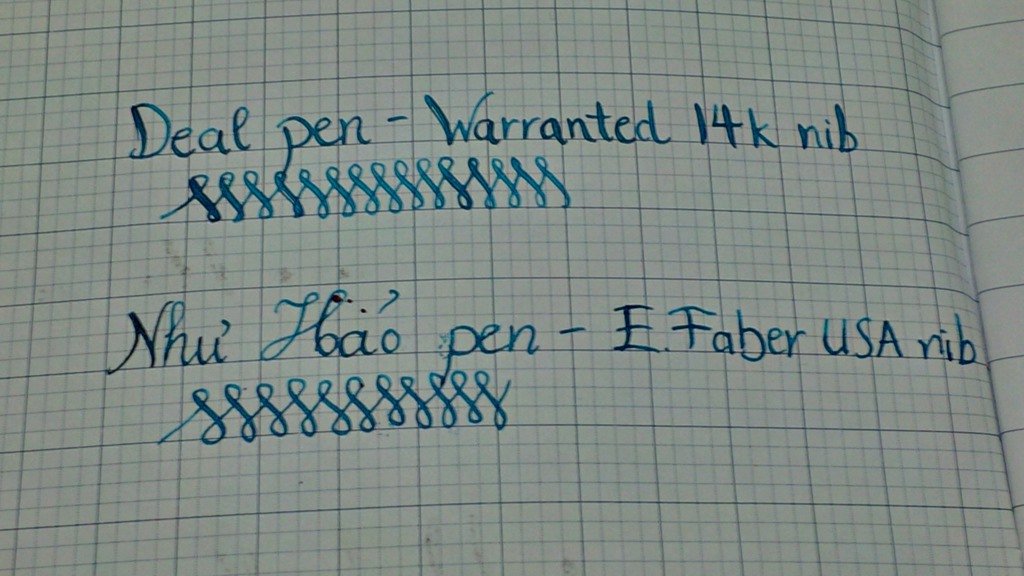 Deal pen - Warranted 14k nib
Như Hảo pen - E. Faber USA nib